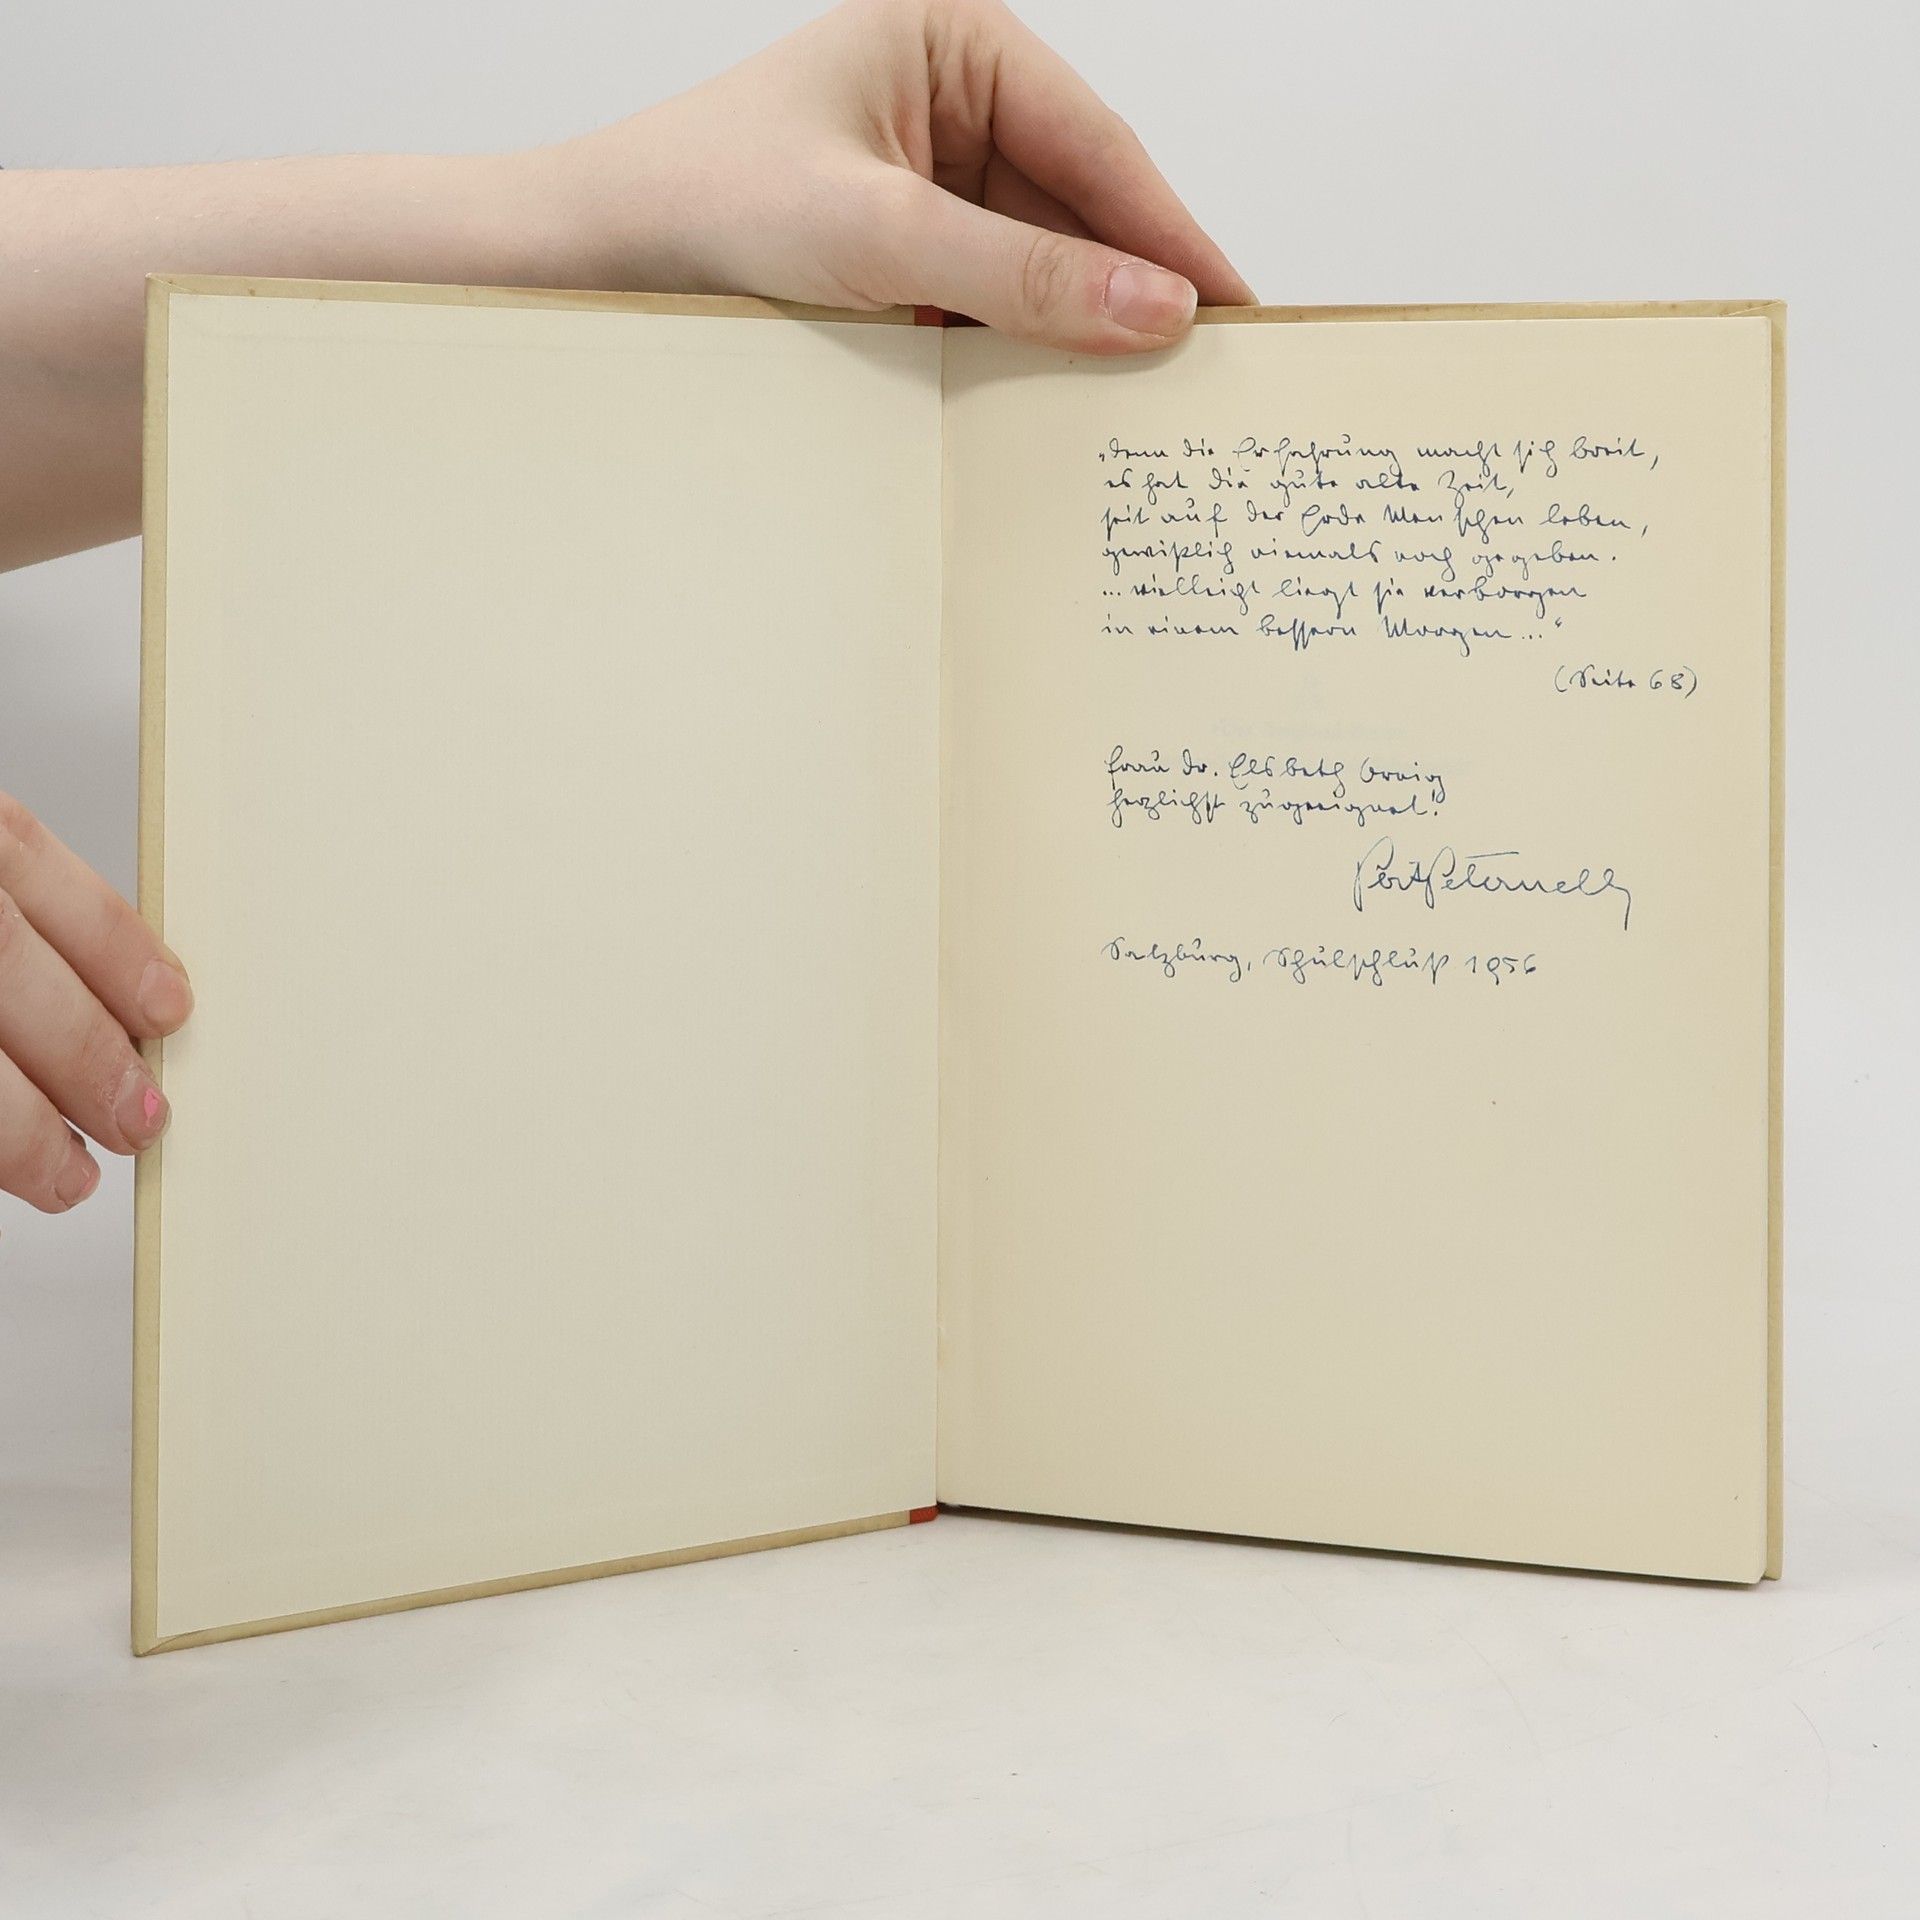 „Denn die Erfahrung macht sich breit,
es hat die gute alte Zeit,
seit auf der Erde Menschen leben,
gewißlich niemals noch gegeben.
... vielleicht liegt sie verborgen
in einem bessern Morgen ..."
(Seite 68)
Frau Dr. Elsbeth Greig
herzlichst zugeeignet!
Pert Peternell
Salzburg, Schulschluß 1956